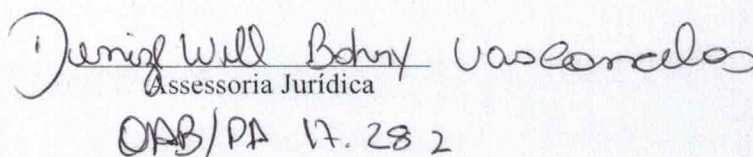 Denize Will Bohry Vasconcelos
Assessoria Jurídica
OAB/PA 17.282